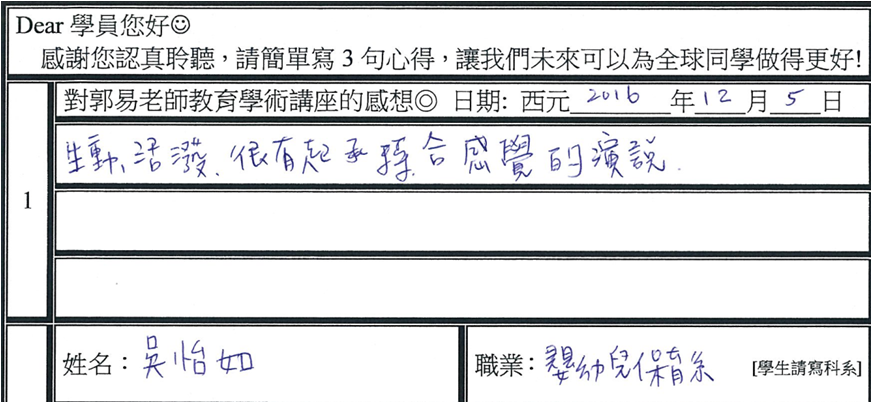 Dear 學員您好☺
感謝您認真聆聽，請簡單寫 3 句心得，讓我們未來可以為全球同學做得更好!
對郭易老師教育學術講座的感想◎ 日期: 西元 2016 年 12 月 5 日
1
生動、活潑、很有起承轉合感覺的演說.
姓名：吳怡如
職業：嬰幼兒保育系 [學生請寫科系]